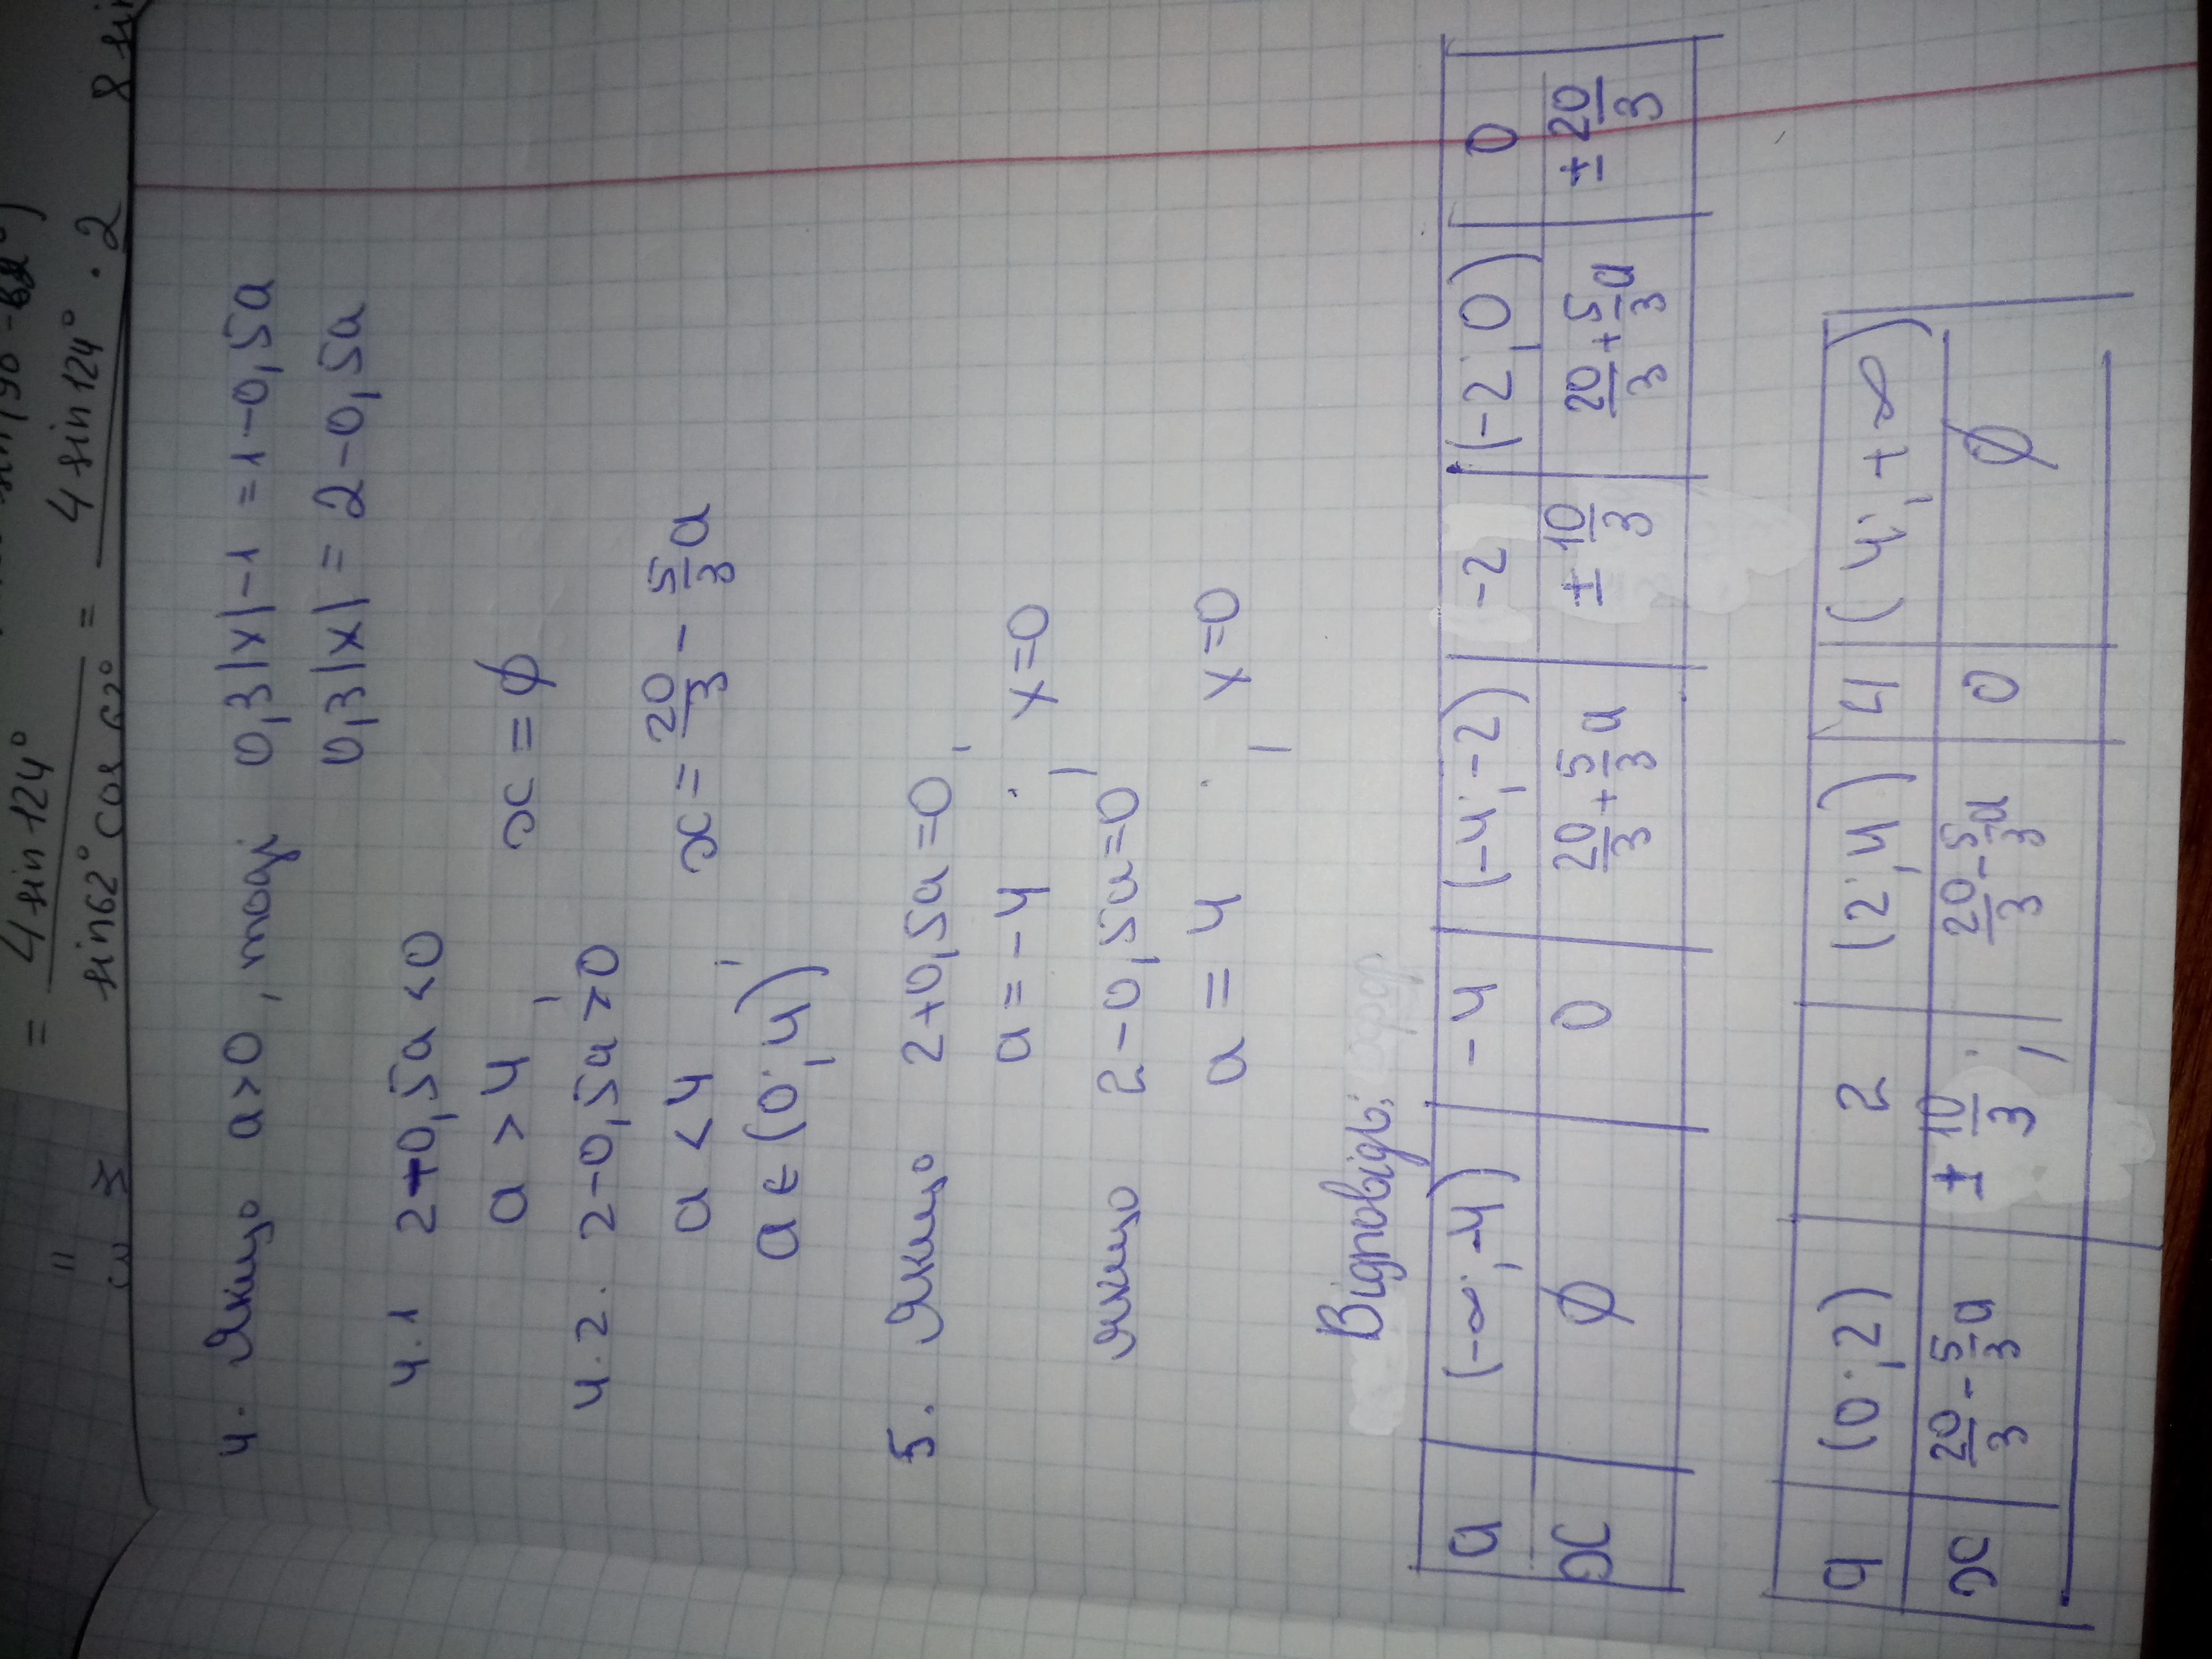 = 4 sin 124° / sin62° cos 62° = 4 sin 124° · 2
8 sin
4. Якщо a>0, тоді 0,3|x|-1=1-0,5a
0,3|x|=2-0,5a
4.1 2+0,5a<0
a>4, x=∅
4.2. 2-0,5a>0
a<4, x=20/3-5/3a
a∈(0;4)
5. Якщо 2+0,5a=0,
a=-4, x=0
якщо 2-0,5a=0
a=4, x=0
Відповідь:
a (-∞;-4) -4 (-4;-2) -2 (-2;0) 0
x ∅ 0 20/3+5/3a ±10/3 20/3+5/3a ±20/3
a (0;2) 2 (2;4) 4 (4;+∞)
x 20/3-5/3a ±10/3; 20/3-5/3a 0 ∅